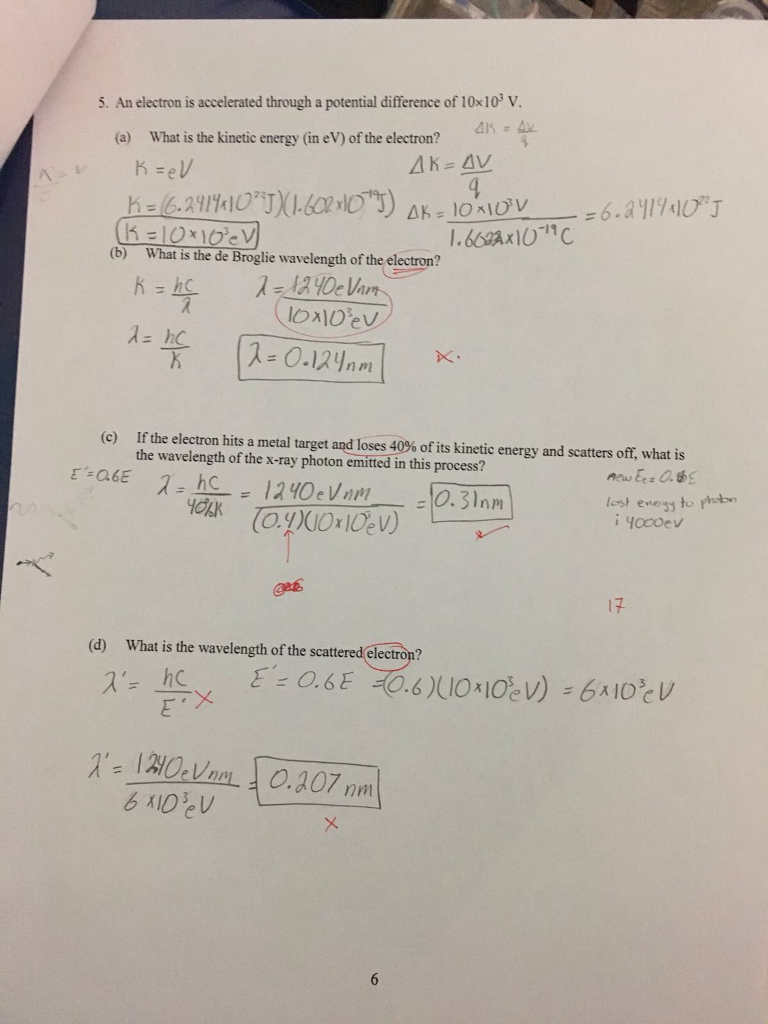 5. An electron is accelerated through a potential difference of 10×10³ V.
ΔK = ΔV/q
(a) What is the kinetic energy (in eV) of the electron?
K = eV
ΔK = ΔV/q
K = (6.2414×10²²J)(1.602×10⁻¹⁹J)
ΔK = 10×10³V / 1.602×10⁻¹⁹C = 6.2414×10²²J
K = 10×10³eV
(b) What is the de Broglie wavelength of the electron?
K = hC/λ
λ = 1240eVnm / 10×10³eV
λ = hC/K
λ = 0.124nm
×.
(c) If the electron hits a metal target and loses 40% of its kinetic energy and scatters off, what is
the wavelength of the x-ray photon emitted in this process?
E' = 0.6E
λ = hC/40%K = 1240eVnm / (0.4)(10×10³eV) = 0.31nm
✓
new Ee = 0.6E
lost energy to photon
i 4000eV
17
(d) What is the wavelength of the scattered electron?
λ' = hC/E' ×
E' = 0.6E = (0.6)(10×10³eV) = 6×10³eV
λ' = 1240eVnm / 6×10³eV = 0.207 nm
×
6